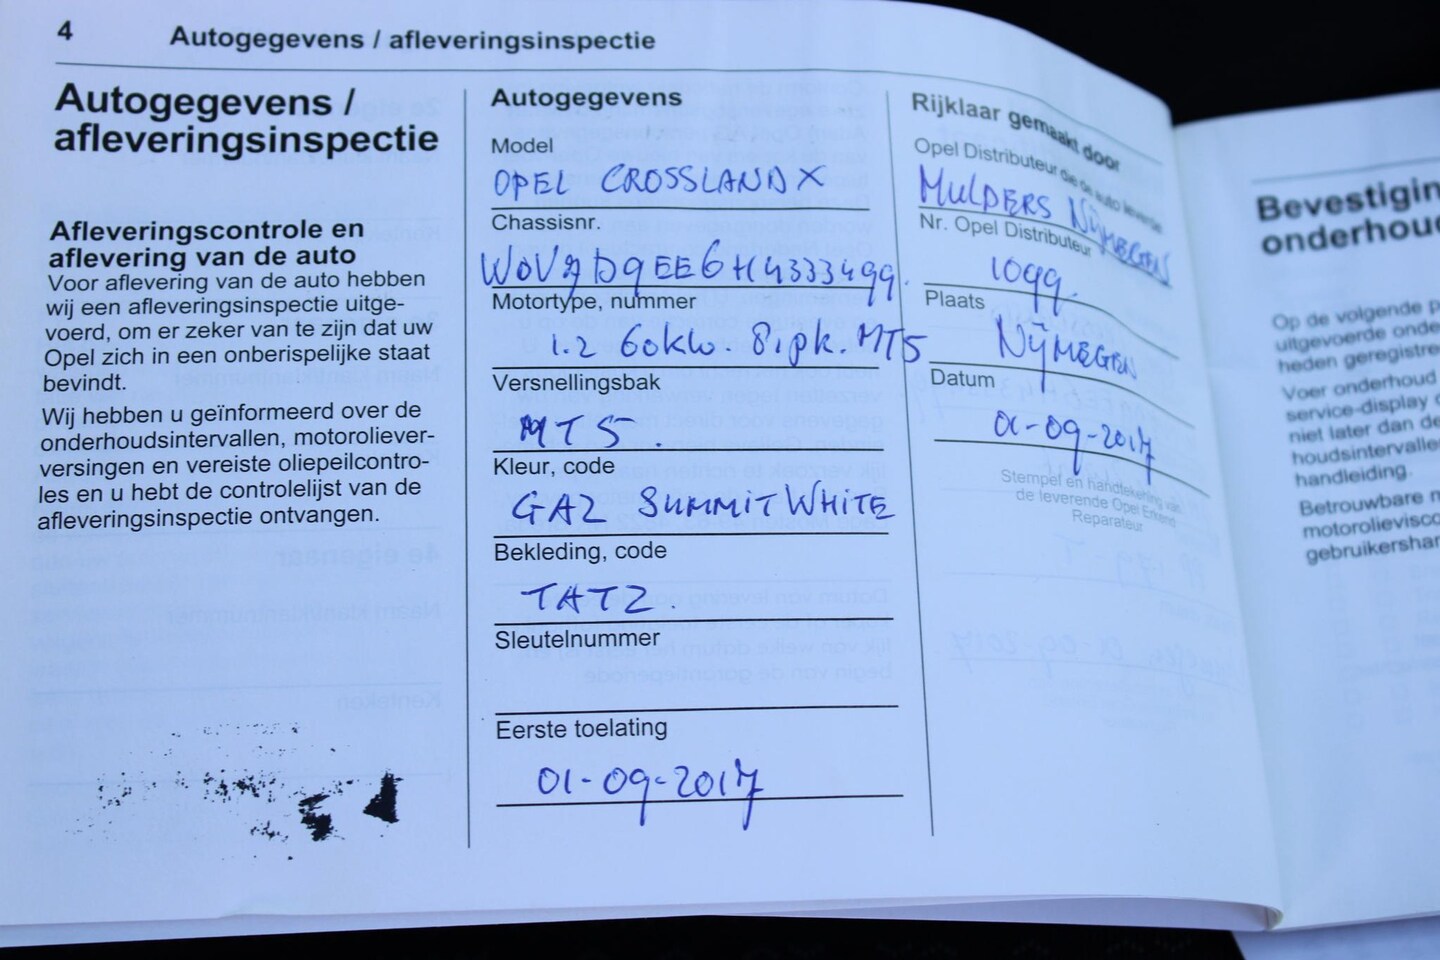 4
Autogegevens / afleveringsinspectie
Autogegevens /
afleveringsinspectie
Afleveringscontrole en
aflevering van de auto
Voor aflevering van de auto hebben
wij een afleveringsinspectie uitge-
voerd, om er zeker van te zijn dat uw
Opel zich in een onberispelijke staat
bevindt.
Wij hebben u geïnformeerd over de
onderhoudsintervallen, motoroliever-
versingen en vereiste oliepeilcontro-
les en u hebt de controlelijst van de
afleveringsinspectie ontvangen.
Autogegevens
Model
OPEL CROSSLAND X
Chassisnr.
Motortype, nummer
1.2 60kw. 81pk. MT5
Versnellingsbak
MT5
Kleur, code
GAZ SUMMIT WHITE
Bekleding, code
TATZ.
Sleutelnummer
Eerste toelating
01-09-2017
Rijklaar gemaakt door
Opel Distributeur die de auto leverde
MULDERS NIJMEGEN
Nr. Opel Distributeur
1099.
Plaats
NIJMEGEN
Datum
01-09-2017
Stempel en handtekening van
de leverende Opel Erkend
Reparateur
Bevestigin
onderhou
Op de volgende p
uitgevoerde onde
heden geregistre
Voer onderhoud
service-display
niet later dan de
houdsintervalle
handleiding.
Betrouwbare
motorolievisco
gebruikershan